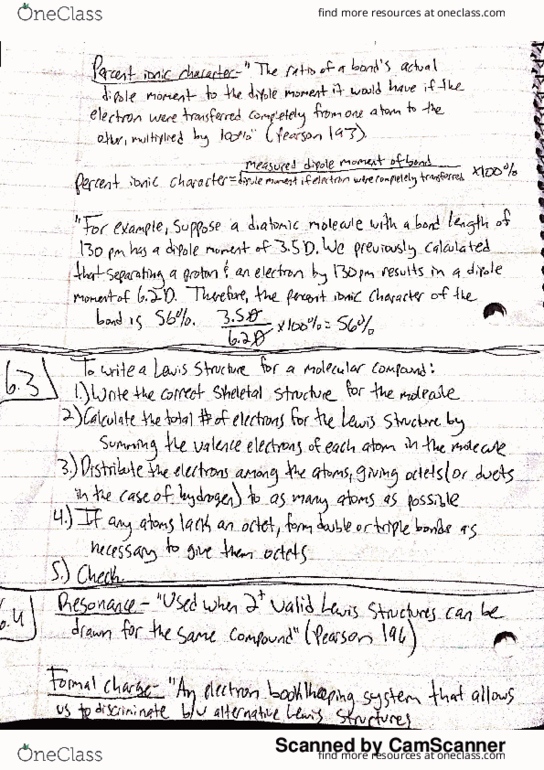 OneClass
find more resources at oneclass.com
Percent ionic character-"The ratio of a bond's actual
dipole moment to the dipole moment it would have if the
electron were transferred completely from one atom to the
other, multiplied by 100%" (Pearson 193).
percent ionic character = measured dipole moment of bond / dipole moment if electron were completely transferred x100%
"For example, suppose a diatomic molecule with a bond length of
130 pm has a dipole moment of 3.5D. We previously calculated
that separating a proton & an electron by 130pm results in a dipole
moment of 6.2D. Therefore, the percent ionic character of the
bond is 56%. 3.5D / 6.2D x100% = 56%
6.3
To write a Lewis structure for a molecular compound:
1.) Write the correct skeletal structure for the molecule
2.) Calculate the total # of electrons for the Lewis structure by
summing the valence electrons of each atom in the molecule
3.) Distribute the electrons among the atoms, giving octets (or duets
in the case of hydrogen) to as many atoms as possible
4.) If any atoms lack an octet, form double or triple bonds as
necessary to give them octets
5.) Check
6.4
Resonance - "Used when 2+ valid Lewis structures can be
drawn for the same compound" (Pearson 196)
Formal charge- "An electron bookkeeping system that allows
us to discriminate b/w alternative Lewis structures
Scanned by CamScanner
OneClass
find more resources at oneclass.com